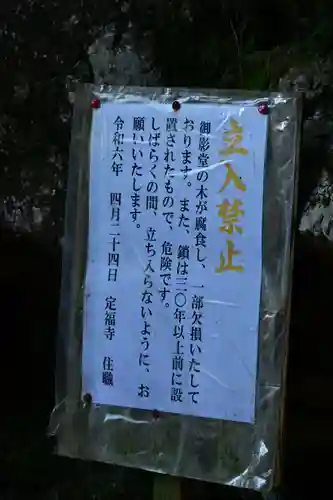 立入禁止
御影堂の木が腐食し、一部欠損いたして
おります。また、鎖は三〇年以上前に設
置されたもので、危険です。
しばらくの間、立ち入らないように、お
願いいたします。
令和六年 四月二十四日 定福寺 住職